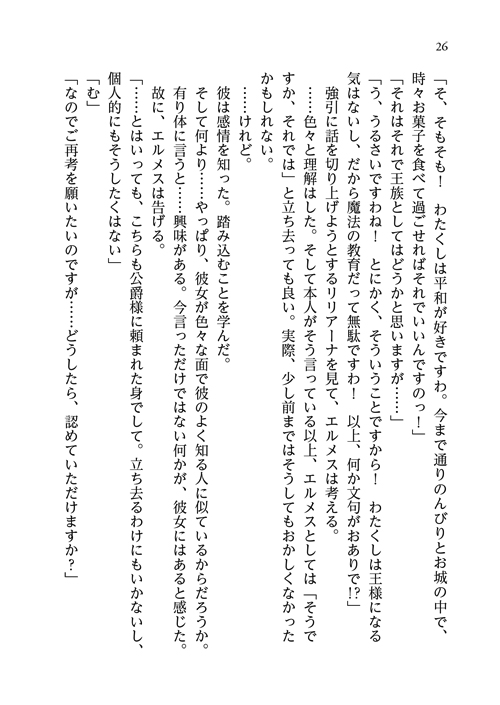 26
「そ、そもそも！　わたくしは平和が好きですわ。今まで通りのんびりとお城の中で、
時々お菓子を食べて過ごせればそれでいいんですのっ！」
「それはそれで王族としてはどうかと思いますが……」
「う、うるさいですわね！　とにかく、そういうことですから！　わたくしは王様になる
気はないし、だから魔法の教育だって無駄ですわ！　以上、何か文句がおありで!?」
　強引に話を切り上げようとするリリアーナを見て、エルメスは考える。
　……色々と理解はした。そして本人がそう言っている以上、エルメスとしては「そうで
すか、それでは」と立ち去っても良い。実際、少し前まではそうしてもおかしくなかった
かもしれない。
　……けれど。
　彼は感情を知った。踏み込むことを学んだ。
　そして何より……やっぱり、彼女が色々な面で彼のよく知る人に似ているからだろうか。
　有り体に言うと……興味がある。今言っただけではない何かが、彼女にはあると感じた。
　故に、エルメスは告げる。
「……とはいっても、こちらも公爵様に頼まれた身でして。立ち去るわけにもいかないし、
個人的にもそうしたくはない」
「む」
「なのでご再考を願いたいのですが……どうしたら、認めていただけますか？」